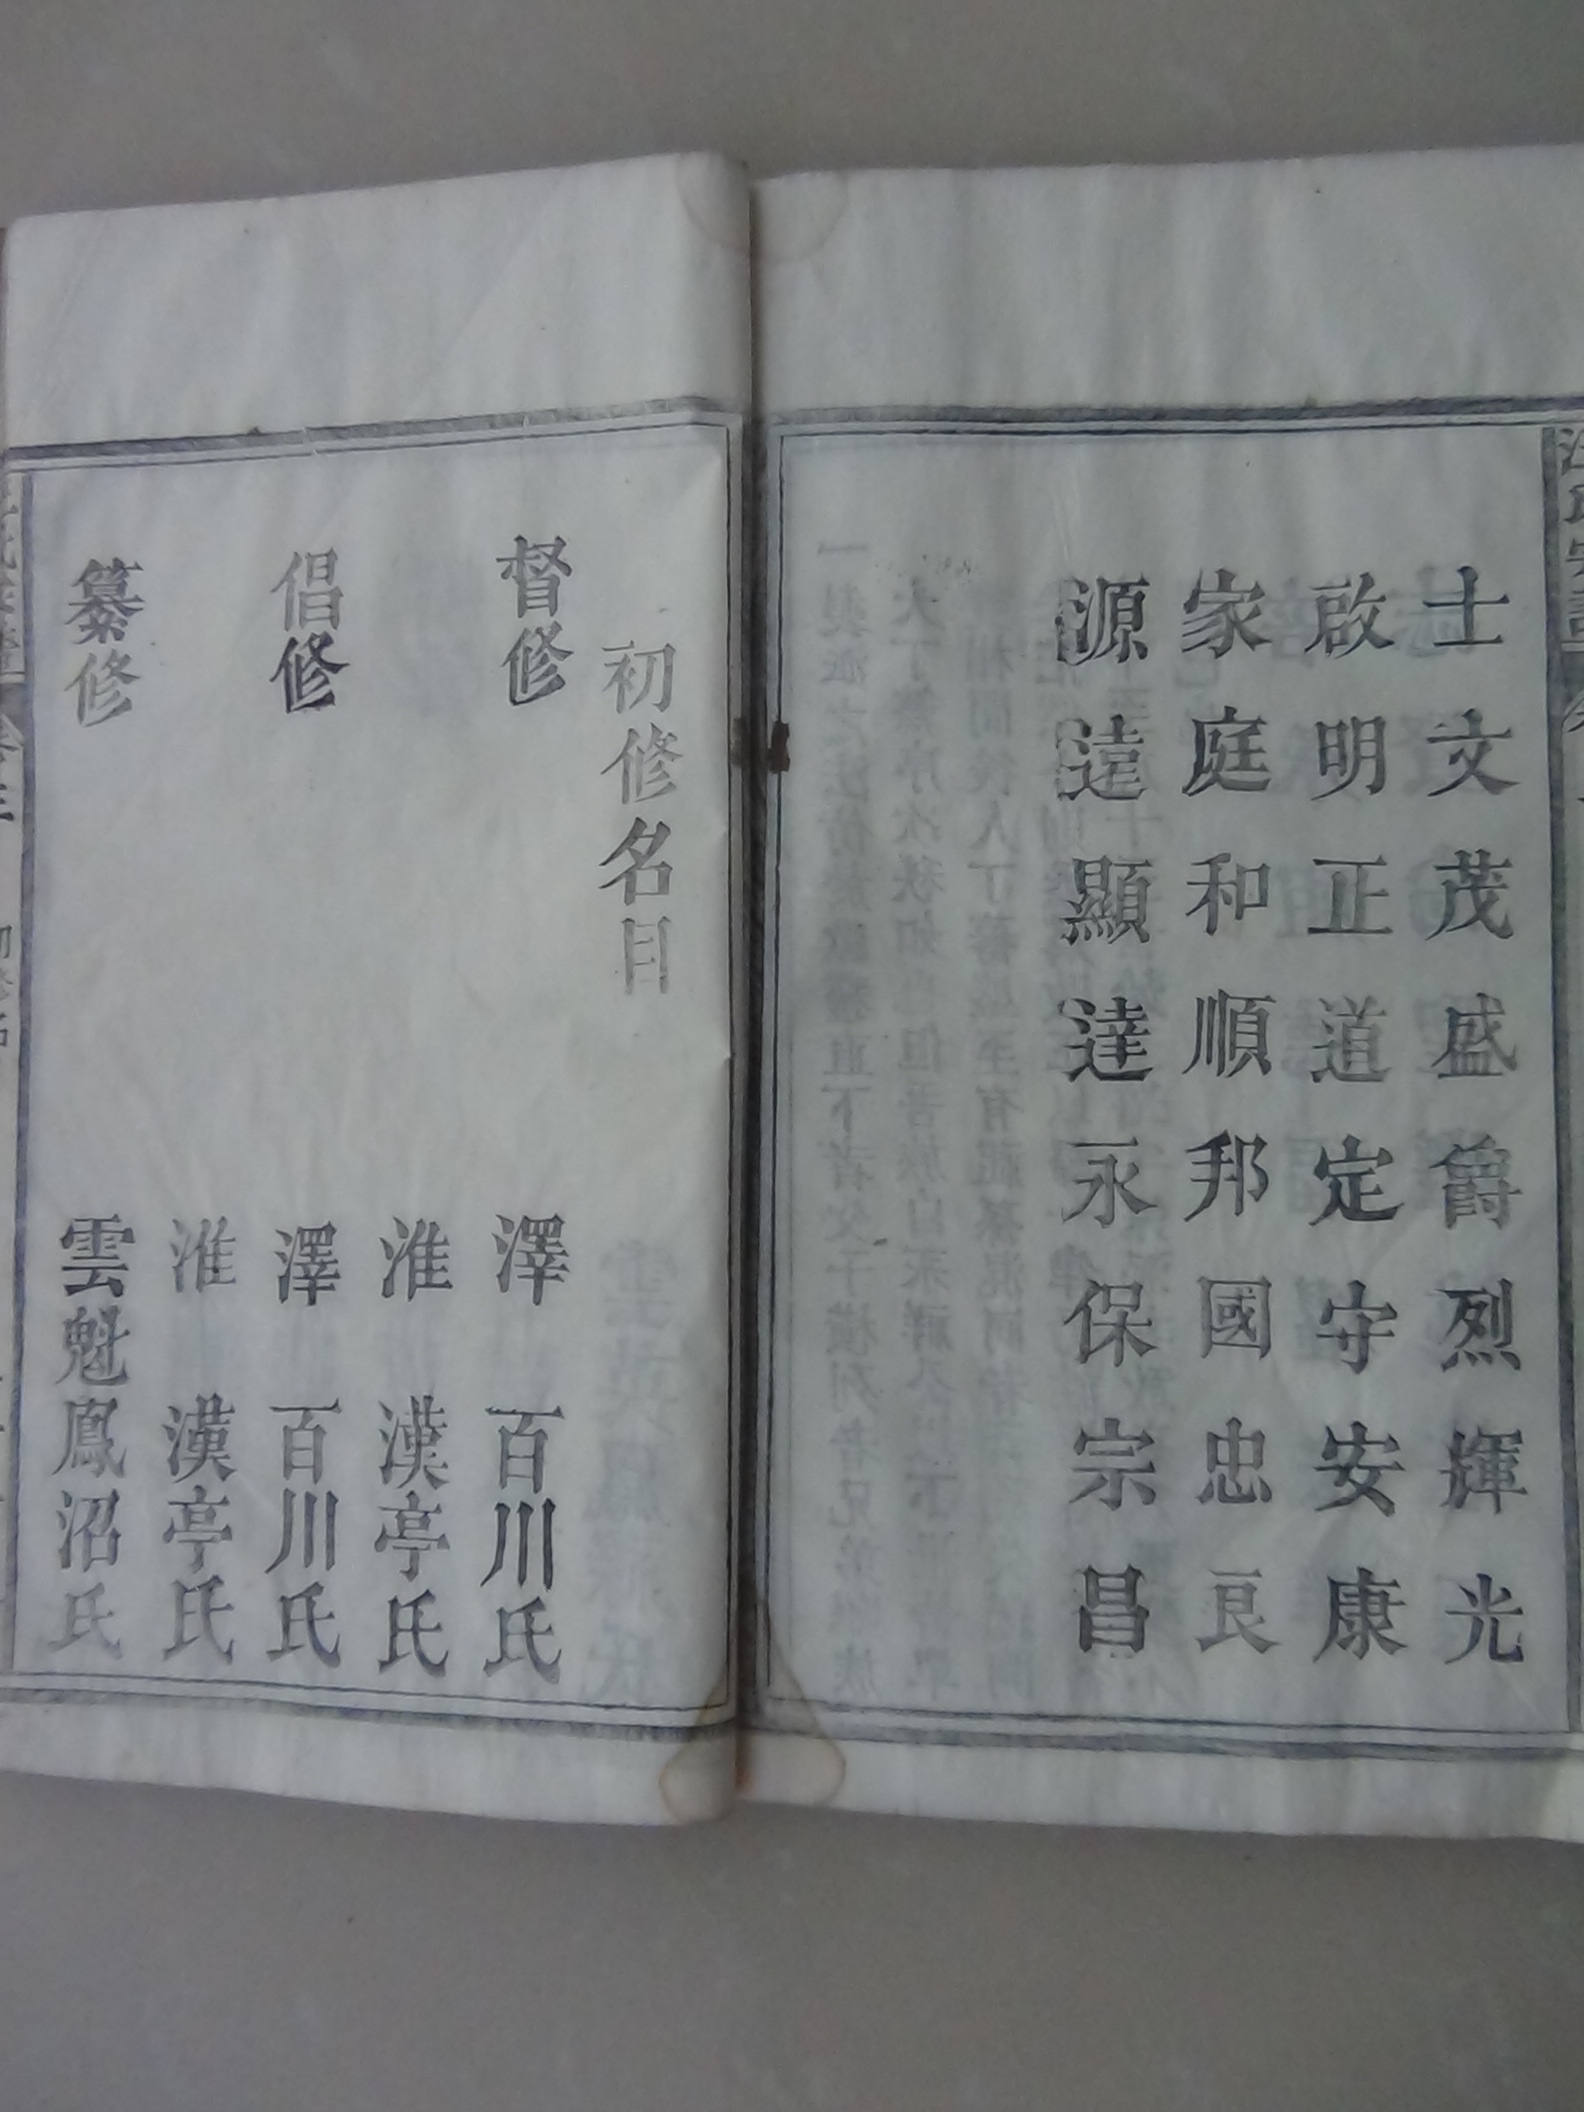 士文茂盛爵烈輝光
啟明正道定守安康
家庭和順邦國忠良
源遠顯達永保宗昌
初修名目
督修 澤 百川氏
淮 漢亭氏
倡修 澤 百川氏
淮 漢亭氏
纂修 雲魁鳳沼氏